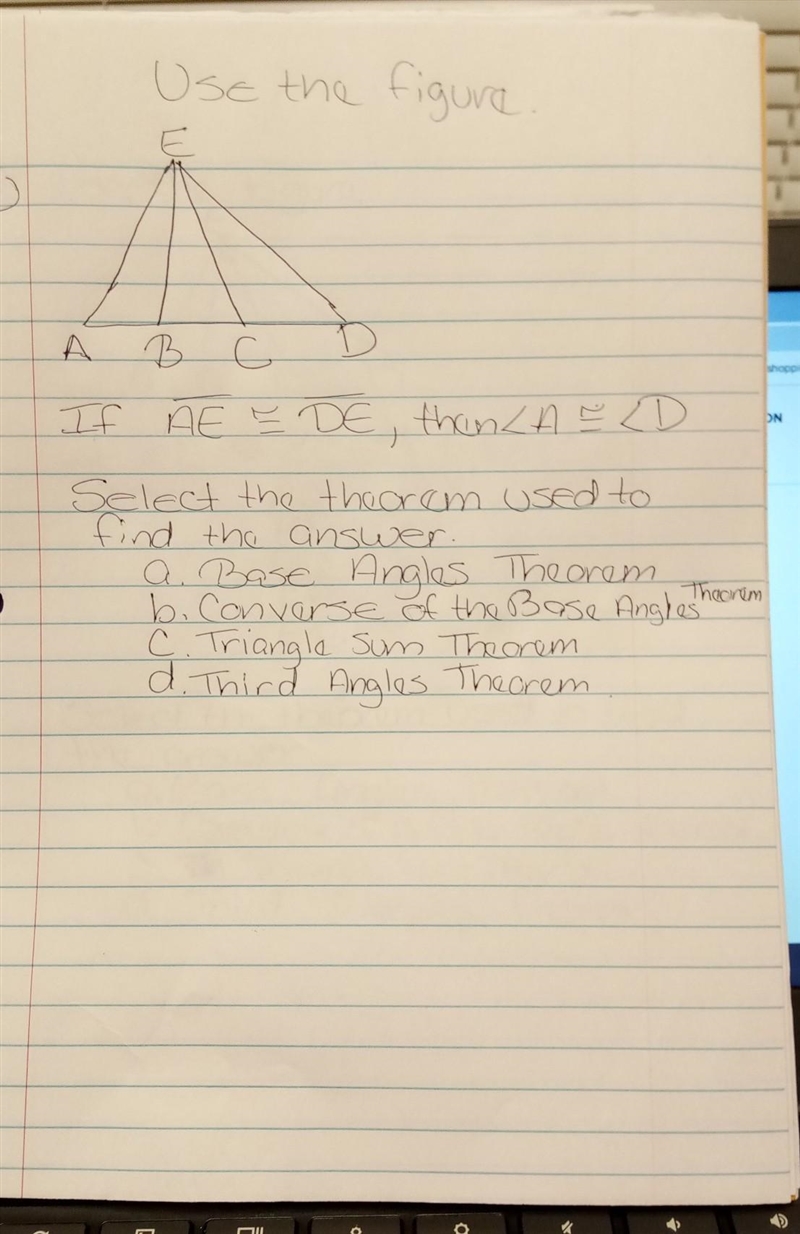 Use the figure.
E
A B C D
If AE ≅ DE, then ∠A ≅ ∠D
Select the theorem used to
find the answer.
a. Base Angles Theorem
b. Converse of the Base Angles Theorem
c. Triangle Sum Theorem
d. Third Angles Theorem
shoppi
ON